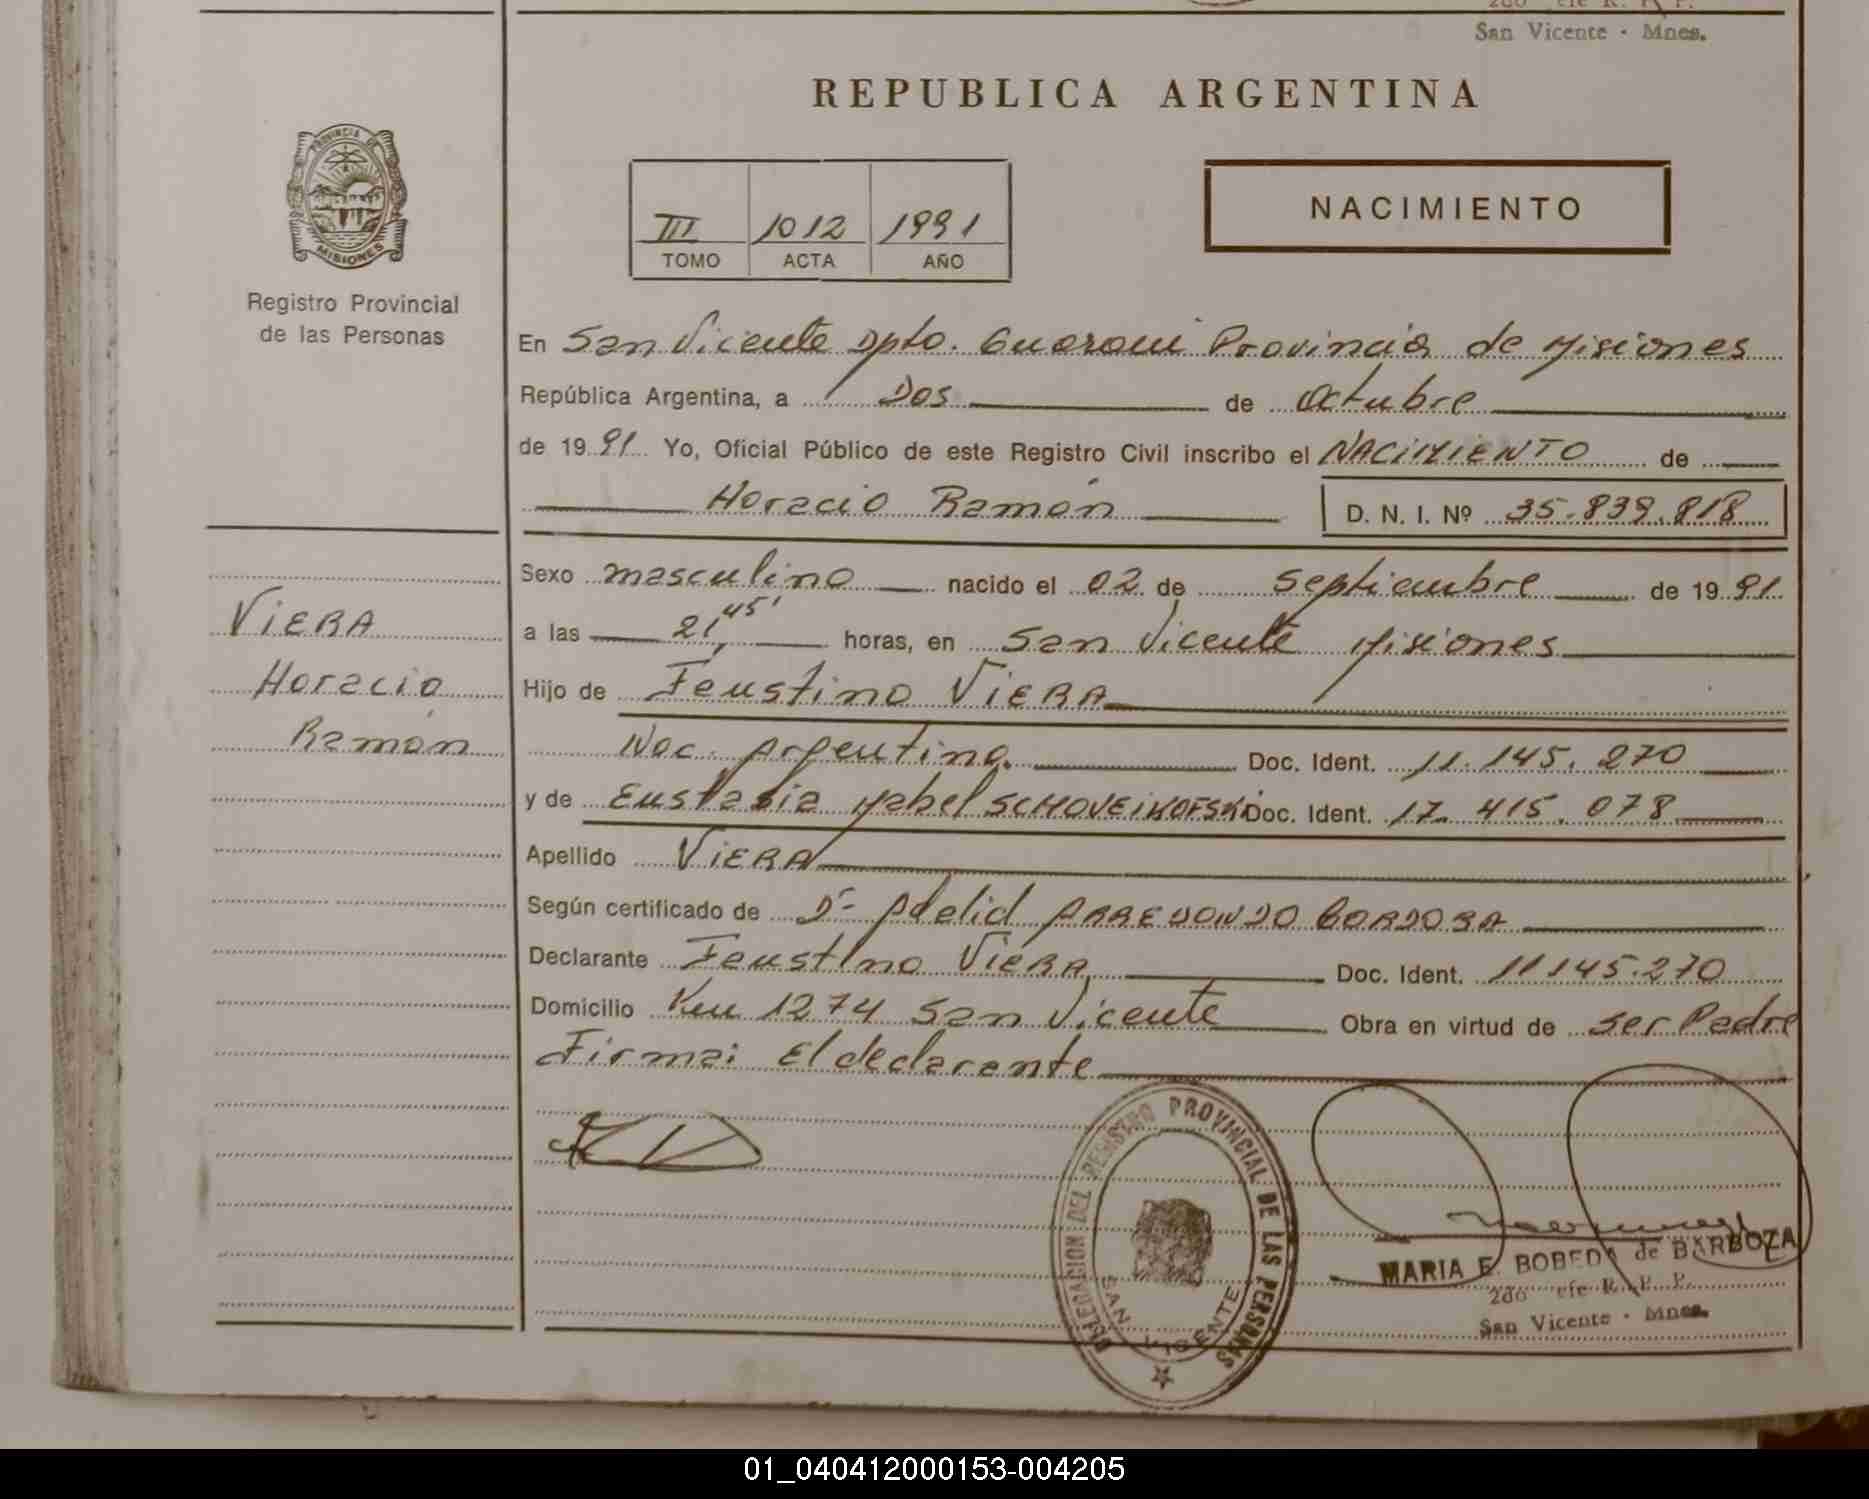 San Vicente - Mnes.
REPUBLICA ARGENTINA
PROVINCIA DE
MISIONES
Registro Provincial
de las Personas
III 1012 1991
TOMO ACTA AÑO
NACIMIENTO
En San Vicente Dpto. Guarani Provincia de Misiones
República Argentina, a Dos de Octubre
de 1991 Yo, Oficial Público de este Registro Civil inscribo el NACIMIENTO de
Horacio Ramón D. N. I. Nº 35.839.818
Sexo masculino nacido el 02 de Septiembre de 1991
a las 21,45' horas, en San Vicente Misiones
Hijo de Faustino VIERA
Nac. Argentina. Doc. Ident. 11.145.270
y de Eustasia Mabel SCHOVEIKOFSKI Doc. Ident. 17.415.078
Apellido VIERA
Según certificado de Dr Adelid ARREDONDO CORDOBA
Declarante Faustino VIERA Doc. Ident. 11145.270
Domicilio Km 1274 San Vicente Obra en virtud de ser Padre
Firma: El declarante
VIERA
Horacio
Ramón
DELEGACION DEL REGISTRO PROVINCIAL DE LAS PERSONAS
SAN VICENTE
MARIA E. BOBEDA de BARBOZA
2do efe R. P. P.
San Vicente - Mnes.
01_040412000153-004205